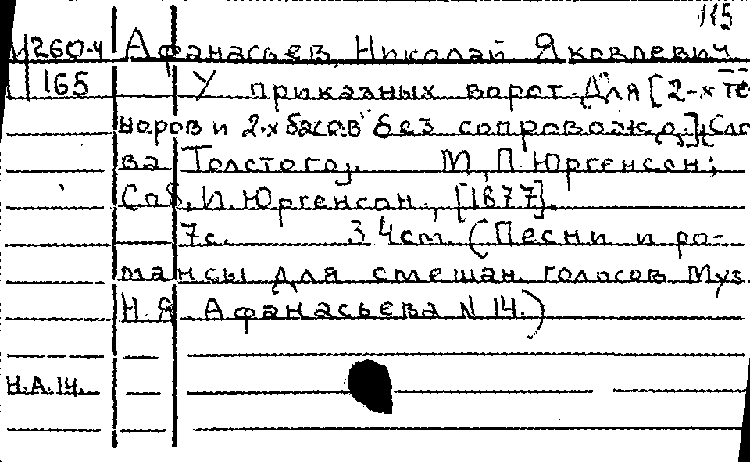 115
М260-4 Афанасьев, Николай Яковлевич
165 У приказных ворот. Для [2-х те-
норов и 2-х басов без сопровожд.] Сло-
ва Толстого. М., П. Юргенсон;
Спб., И. Юргенсон, [1877].
7с. 34см. (Песни и ро-
мансы для смешан. голосов Муз.
Н.Я. Афанасьева N 14.)
Н.А.14.